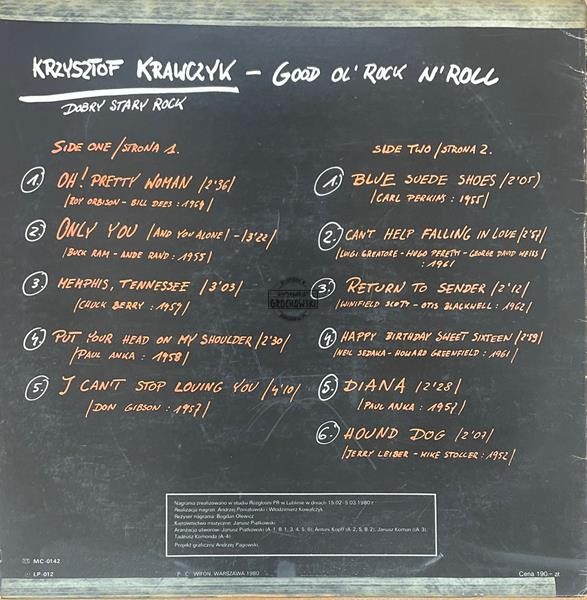 KRZYSZTOF KRAWCZYK – GOOD OL' ROCK N' ROLL
DOBRY STARY ROCK
SIDE ONE /STRONA 1.
1. OH! PRETTY WOMAN /2'36/
/ROY ORBISON - BILL DEES: 1964/
2. ONLY YOU /AND YOU ALONE/ - /3'22/
/BUCK RAM - ANDE RAND: 1955/
3. MEMPHIS, TENNESSEE /3'03/
/CHUCK BERRY: 1959/
4. PUT YOUR HEAD ON MY SHOULDER /2'30/
/PAUL ANKA: 1958/
5. I CAN'T STOP LOVING YOU /4'10/
/DON GIBSON: 1957/
SIDE TWO /STRONA 2.
1. BLUE SUEDE SHOES /2'05/
/CARL PERKINS: 1955/
2. CAN'T HELP FALLING IN LOVE /2'57/
/LUIGI CREATORE - HUGO PERETTI - GEORGE DAVID WEISS/
: 1961/
3. RETURN TO SENDER /2'12/
/WINIFIELD SCOTT - OTIS BLACKWELL: 1962/
4. HAPPY BIRTHDAY SWEET SIXTEEN /2'59/
/NEIL SEDAKA - HOWARD GREENFIELD: 1961/
5. DIANA /2'28/
/PAUL ANKA: 1957/
6. HOUND DOG /2'07/
/JERRY LEIBER - MIKE STOLLER: 1952/
GROCHOWSKI
Nagrania zrealizowano w studiu Rozgłośni PR w Lublinie w dniach 15.02-5.03.1980 r.
Realizacja nagrań: Andrzej Poniatowski i Włodzimierz Kowalczyk
Reżyser nagrania: Bogdan Olewicz
Kierownictwo muzyczne: Janusz Piątkowski
Aranżacja utworów: Janusz Piątkowski (A. 1, B. 1, 3, 4, 5, 6), Antoni Kopff (A. 2, 5, B. 2), Janusz Koman (A. 3),
Tadeusz Klimonda (A-4)
Projekt graficzny: Andrzej Pągowski.
MC-0142
LP 012
P C WIFON, WARSZAWA 1980
Cena 190,- zł